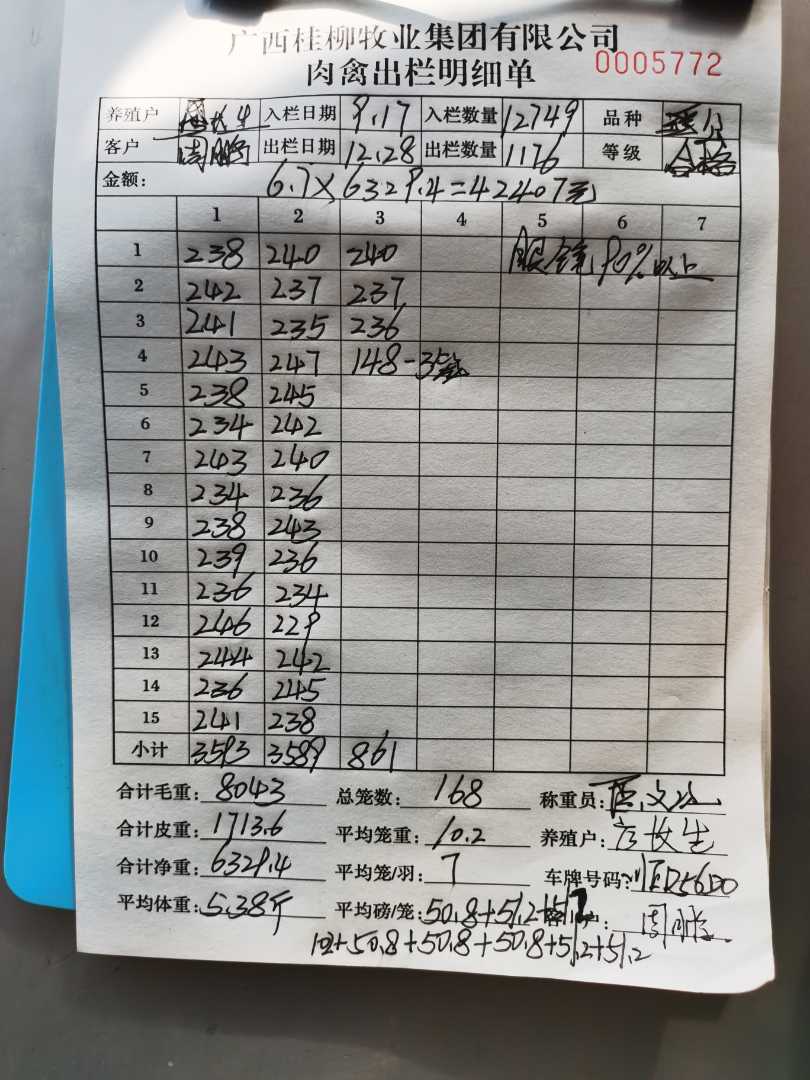 广西桂柳牧业集团有限公司
肉禽出栏明细单 0005772
养殖户 入栏日期 9.17 入栏数量 12749 品种
客户 周鹏 出栏日期 12.28 出栏数量 1176 等级 合格
金额: 6.7×6329.4=42407元
1 2 3 4 5 6 7
1 238 240 240 90%以上
2 242 237 237
3 241 235 236
4 243 247 148-3
5 238 245
6 234 242
7 243 240
8 234 236
9 238 243
10 239 236
11 236 234
12 246 229
13 244 242
14 236 245
15 241 238
小计 3593 3589 861
合计毛重: 8043 总笼数: 168 称重员:
合计皮重: 1713.6 平均笼重: 10.2 养殖户: 长生
合计净重: 6329.4 平均笼/羽: 7 车牌号码:
平均体重: 5.38斤 平均磅/笼: 50.8+51.2+51.2 户: 周鹏
102+50.8+50.8+50.8+51.2+51.2